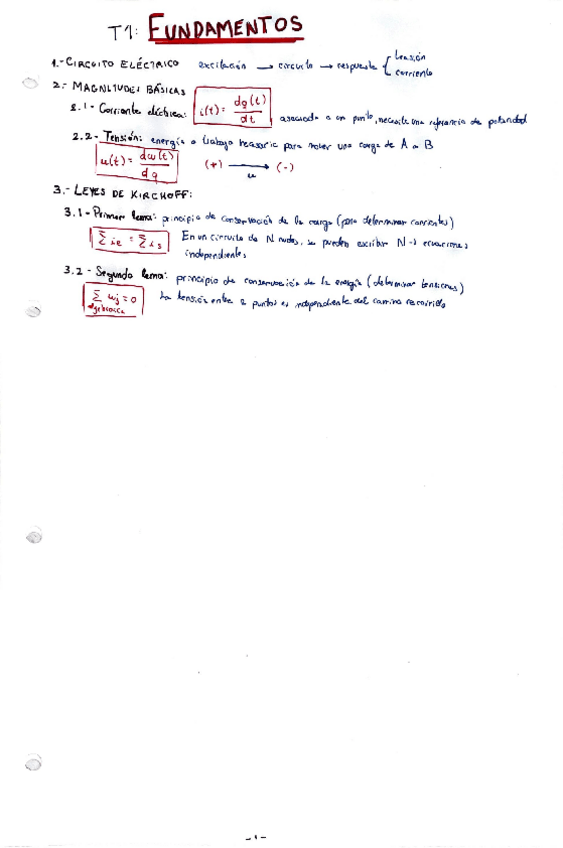 T1: FUNDAMENTOS
1.- CIRCUITO ELÉCTRICO excitación → circuito → respuesta { tensión
corriente
2.- MAGNITUDES BÁSICAS
2.1 - Corriente eléctrica: i(t) = dq(t)/dt asociada a un punto, necesita una referencia de polaridad
2.2 - Tensión: energía o trabajo necesario para mover una carga de A a B
u(t) = dw(t)/dq (+) → (-)
u
3.- LEYES DE KIRCHOFF:
3.1 - Primer lema: principio de conservación de la carga (para determinar corrientes)
∑ie = ∑is En un circuito de N nudos, se pueden escribir N-1 ecuaciones
independientes
3.2 - Segundo lema: principio de conservación de la energía (determinar tensiones)
∑uj = 0 La tensión entre 2 puntos es independiente del camino recorrido
algebraica
- 1 -